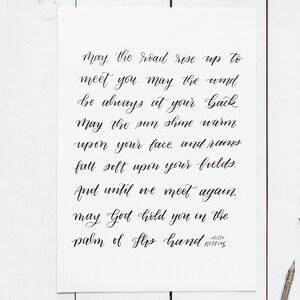 may the road rise up to
meet you. may the wind
be always at your back.
may the sun shine warm
upon your face, and rains
fall soft upon your fields.
And until we meet again,
may God hold you in the
palm of His hand. IRISH
BLESSING